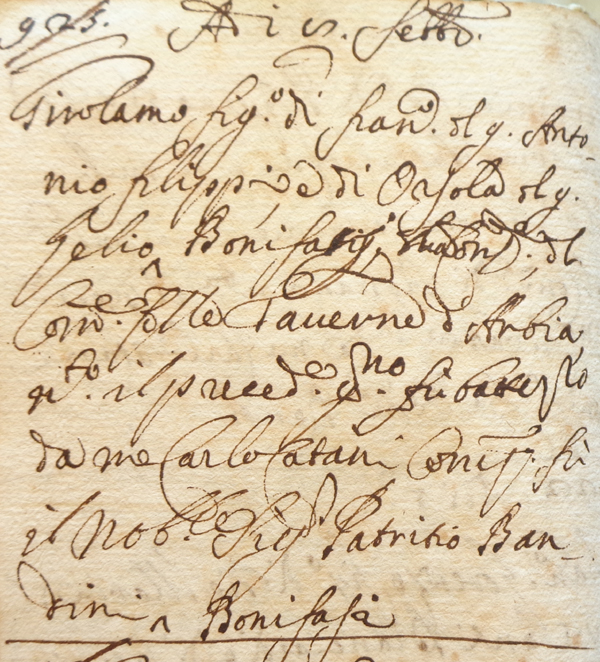 Adi 5. Settb.
Girolamo fig.º di Fran.º del q. Anto-
nio Filippi, e di Orsola del q.
Gelio ^ Bonifatij, del
Com.e delle Taverne d'Arbia
n.to il preced.e g.no fu battez.to
da me Carlo Catani Comp. fù
il Nob.le Sig.r Patritio Ban-
dini ^ Bonifasi